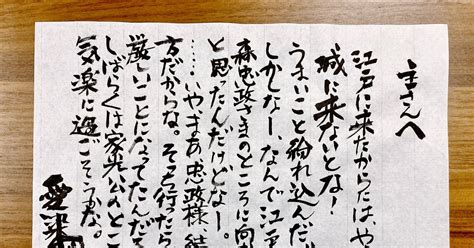 主さんへ
江戸に来たからには、や
城に来ないとな!
うまいこと紛れ込んだ
しかしなー、なんで江戸
森忠政さまのところに向
と思ったんだけどなー。
……いやまあ忠政様、結
方だからな。そっち行ったら
厳しいことになってたんだろ
しばらくは家光公のとこ
気楽に過ごそうかな。
愛染